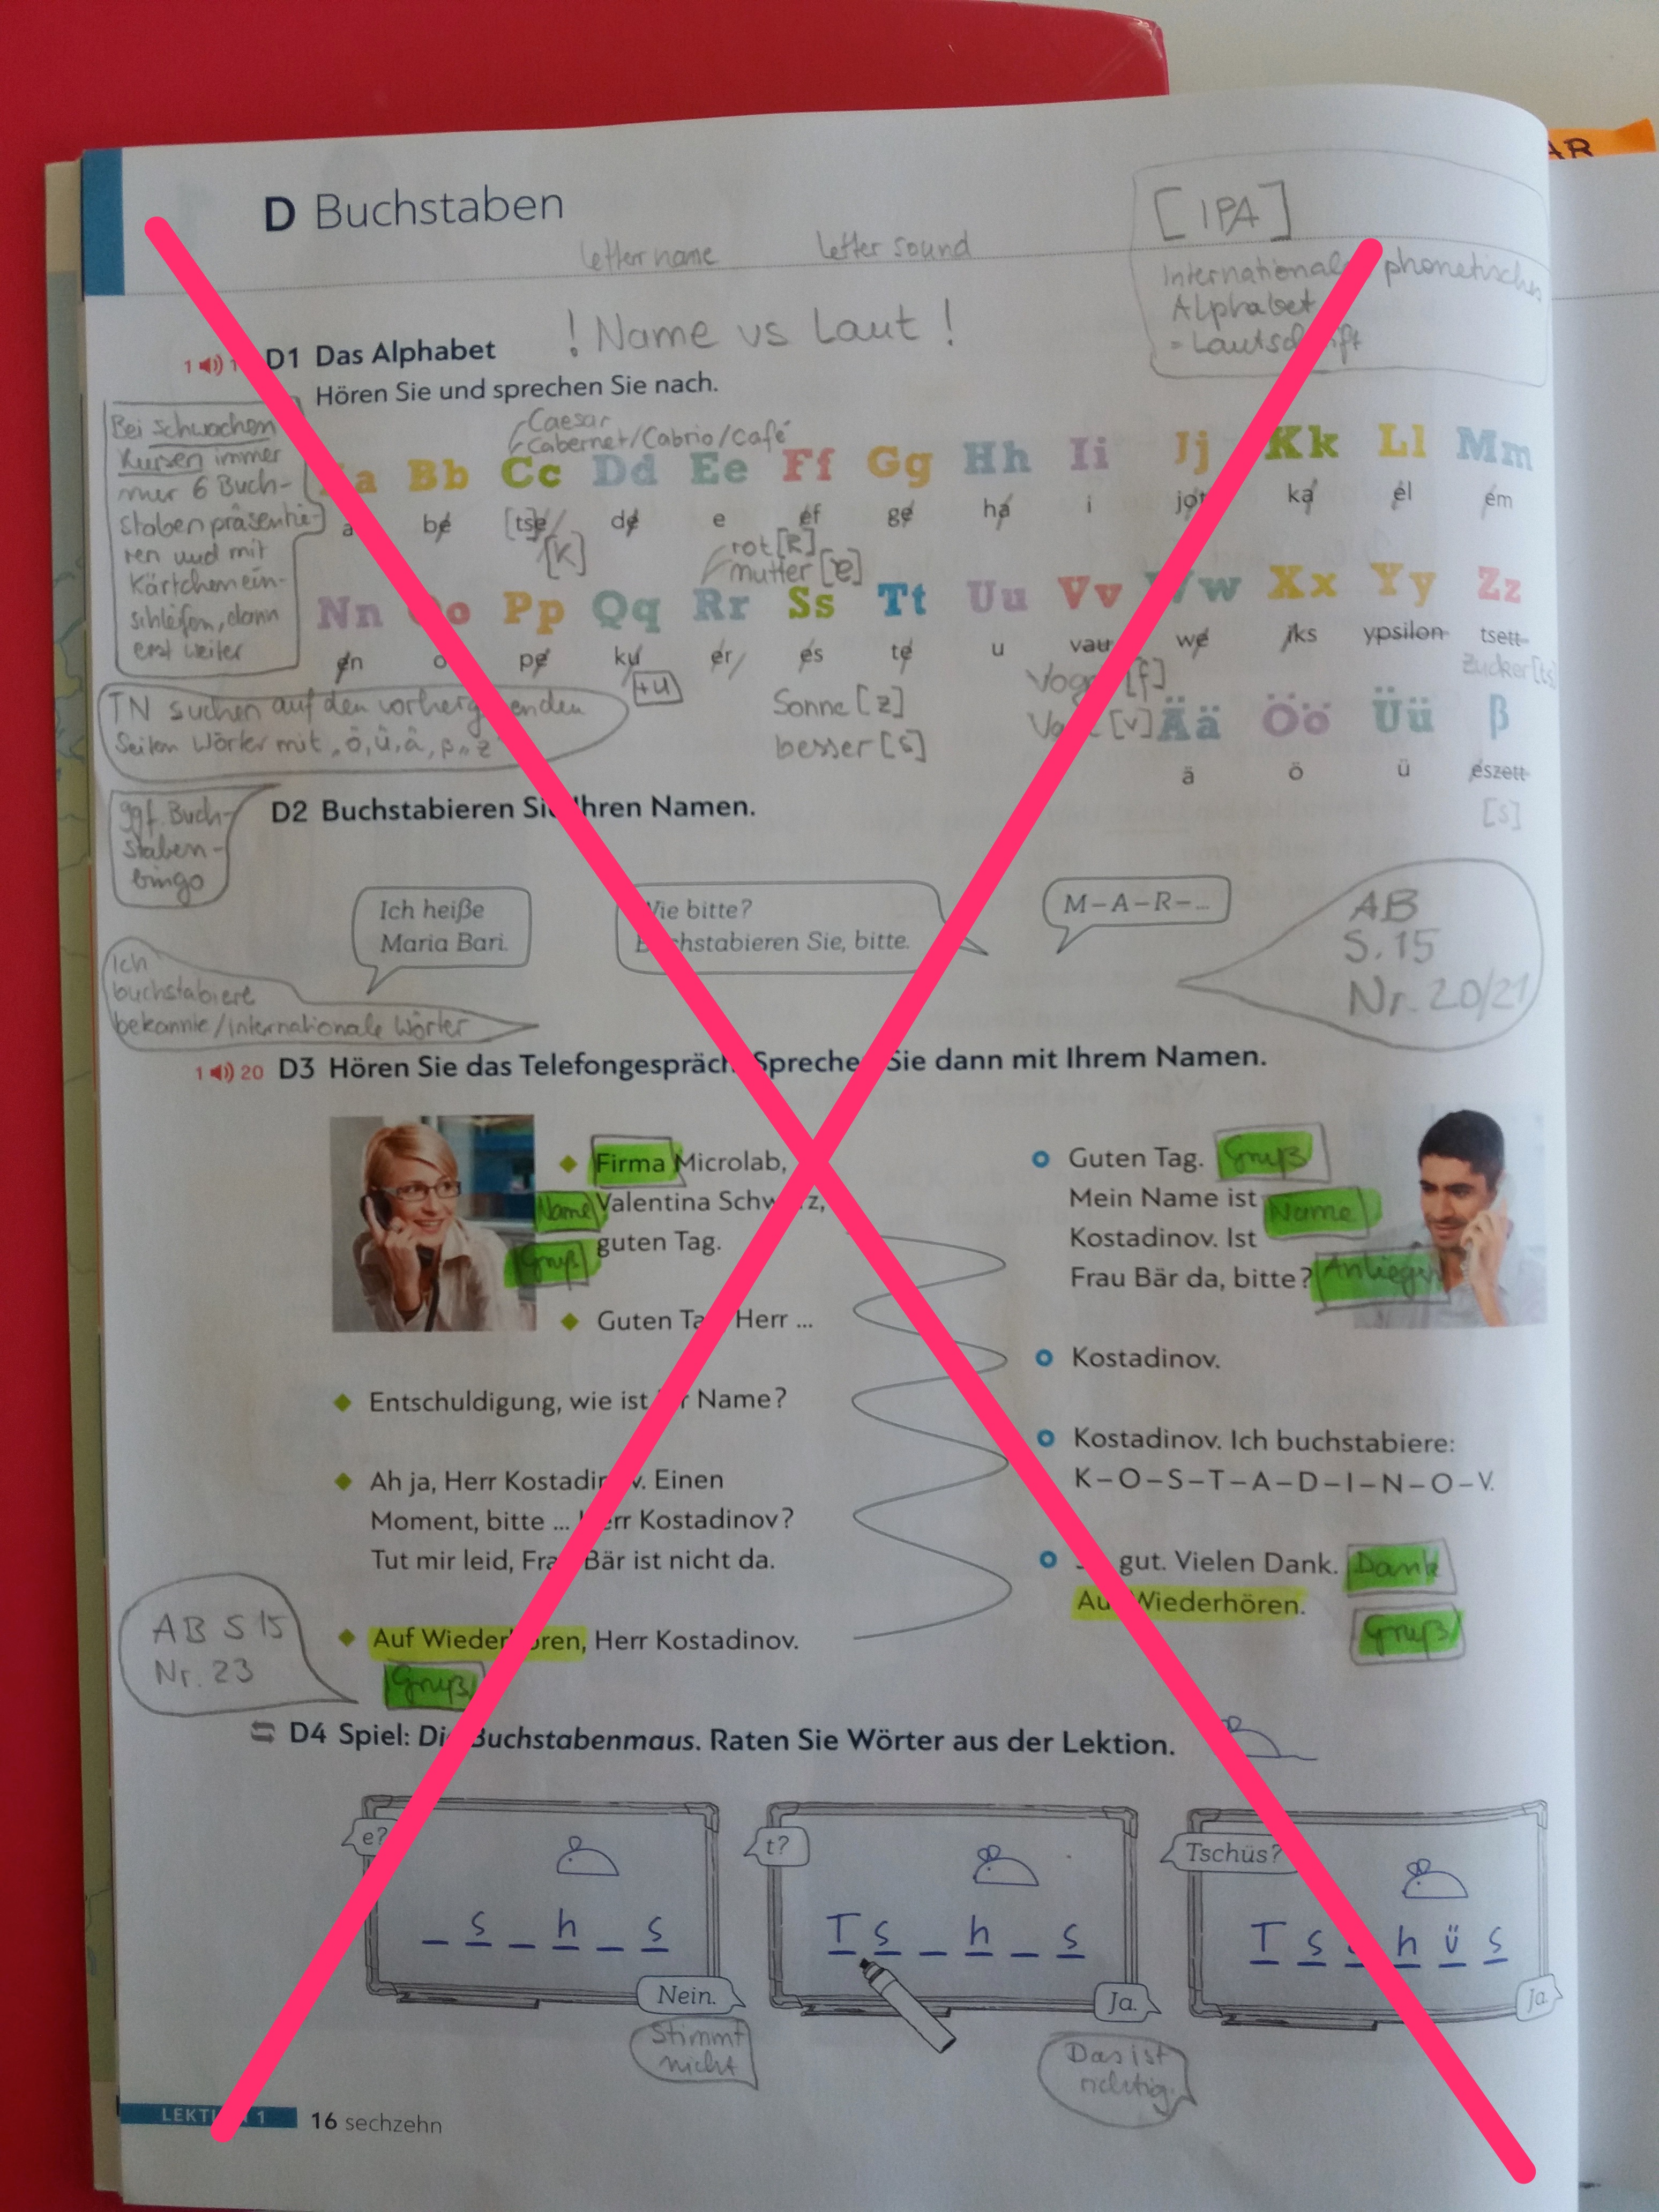 AR
D Buchstaben
[IPA]
letter name letter sound
phonetisches
Alphabet
! Name vs Laut !
D1 Das Alphabet
Hören Sie und sprechen Sie nach.
Bei schwachen
Kursen immer
nur 6 Buch-
staben präsentie-
ren und mit
Kärtchen ein-
schleifen, dann
erst weiter
Caesar
Cabernet/Cabrio/Café
a Bb Cc Dd Ee Ff Gg Hh Ii Jj Kk Ll Mm
a be [tse] de e ef ge ha i jot ka el em
[k]
rot [R]
mutter [ɐ]
Nn o Pp Qq Rr Ss Tt Uu Vv w Xx Yy Zz
en o pe ku er es te u vau we iks ypsilon tsett
+u
Zucker [ts]
Vogel [f]
Sonne [z]
besser [s]
[v]
Ää Öö Üü ß
ä ö ü eszett
[s]
TN suchen auf den vorhergehenden
Seiten Wörter mit „ö, ü, ä, ß„ z
ggf. Buch-
staben-
bingo
D2 Buchstabieren Sie Ihren Namen.
Ich heiße
Maria Bari.
Wie bitte?
Buchstabieren Sie, bitte.
M–A–R–...
AB
S. 15
Nr. 20/21
Ich
buchstabiere
bekannte/internationale Wörter
1 20 D3 Hören Sie das Telefongespräch. Sprechen Sie dann mit Ihrem Namen.
Firma Microlab,
Name Valentina Schwarz,
Gruß guten Tag.
Guten Tag. Gruß
Mein Name ist Name
Kostadinov. Ist
Frau Bär da, bitte? Anliegen
Guten Tag, Herr ...
Kostadinov.
Entschuldigung, wie ist Ihr Name?
Kostadinov. Ich buchstabiere:
K–O–S–T–A–D–I–N–O–V.
Ah ja, Herr Kostadinov. Einen
Moment, bitte ... Herr Kostadinov?
Tut mir leid, Frau Bär ist nicht da.
gut. Vielen Dank. Dank
Auf Wiederhören.
Gruß
AB S 15
Nr. 23
Auf Wiederhören, Herr Kostadinov.
Gruß
D4 Spiel: Die Buchstabenmaus. Raten Sie Wörter aus der Lektion.
e?
_ s _ h _ s
Nein.
Stimmt
nicht
t?
T s _ h _ s
Ja.
Das ist
richtig.
Tschüs?
T s c h ü s
Ja.
LEKTION 1 16 sechzehn